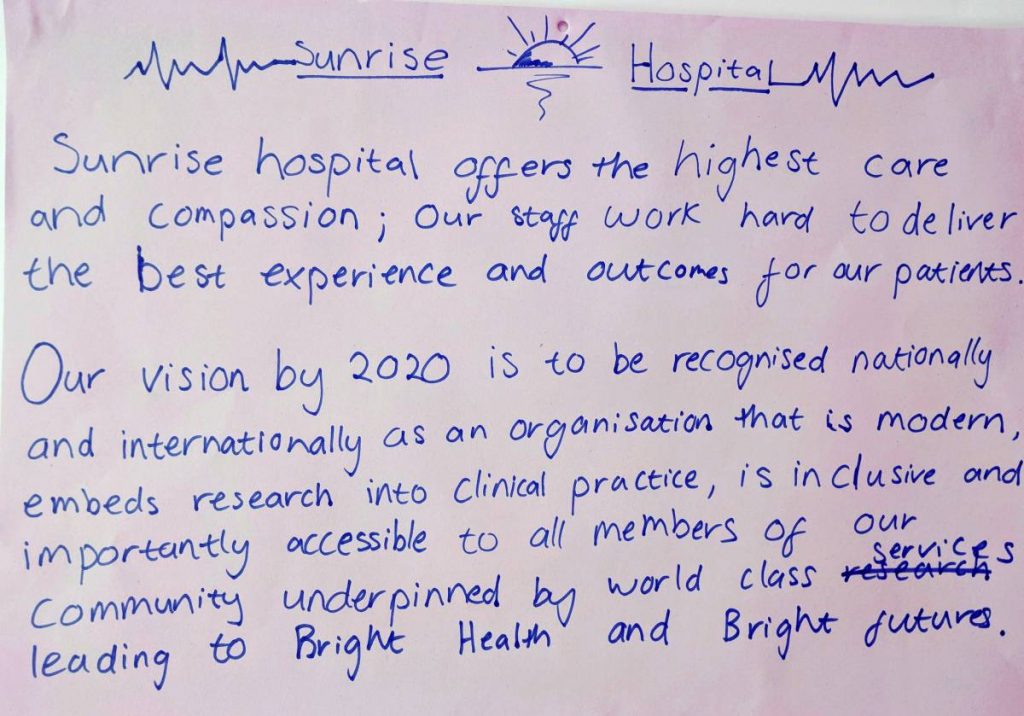 Sunrise Hospital
Sunrise hospital offers the highest care
and compassion; Our staff work hard to deliver
the best experience and outcomes for our patients.
Our vision by 2020 is to be recognised nationally
and internationally as an organisation that is modern,
embeds research into clinical practice, is inclusive and
importantly accessible to all members of our
community underpinned by world class ~~research~~ services
leading to Bright Health and Bright futures.